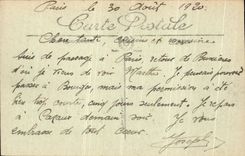 Paris le 30 Août 1920.
Carte Postale
Chère tante, cousin et cousine,
Suis de passage à Paris retour de Bernières
d'où je viens de voir Marthe. Je pensais pouvoir
passer à Bourges, mais ma permission a été
très courte, cinq jours seulement. Je repars
à demain soir. Je vous
embrasse de tout cœur.
Joseph